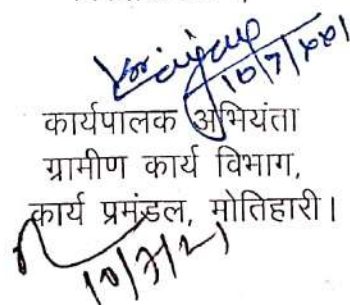 10/7/2021
कार्यपालक अभियंता
ग्रामीण कार्य विभाग,
कार्य प्रमंडल, मोतिहारी।
10/7/21